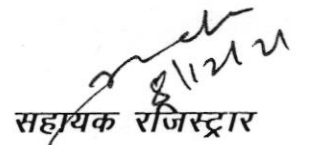 8/12/21
सहायक रजिस्ट्रार